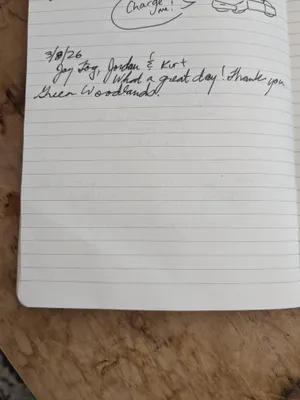 Charge
me!
3/8/26
Joy Fog, Jordan & Kurt
What a great day! Thank you
Green Woodlands!